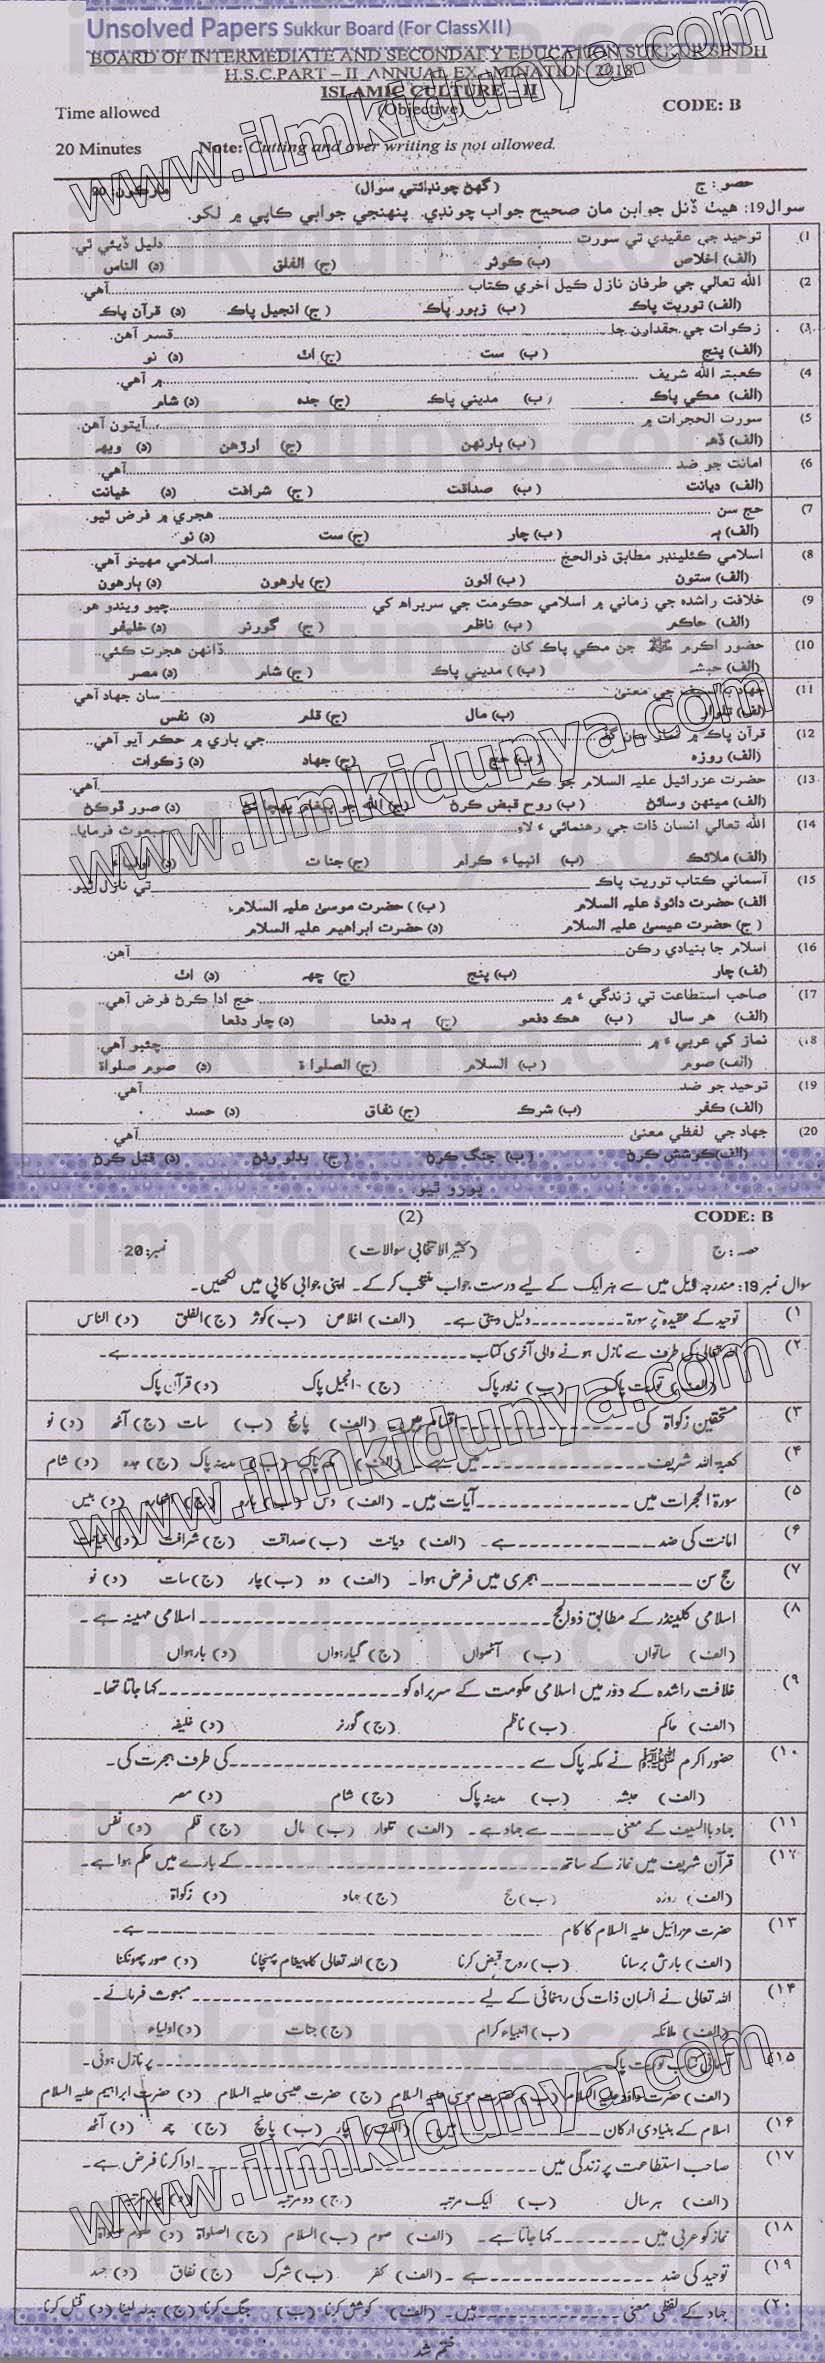 Unsolved Papers Sukkur Board (For ClassXII)
BOARD OF INTERMEDIATE AND SECONDARY EDUCATION SUKKUR SINDH
H.S.C.PART – II ANNUAL EXAMINATION 2018
ISLAMIC CULTURE – II
Time allowed (Objective) CODE: B
20 Minutes Note: Cutting and over writing is not allowed.
حصو: ج (گھڻ چونڊائتي سوال) مارڪون: 20
سوال 19: هيٺ ڏنل جوابن مان صحيح جواب چونڊي. پنهنجي جوابي ڪاپي ۾ لکو.
1) توحيد جي عقيدي تي سورت ........ دليل ڏيئي ٿي.
(الف) اخلاص (ب) ڪوثر (ج) الفلق (د) الناس
2) الله تعاليٰ جي طرفان نازل ڪيل آخري ڪتاب ........ آهي.
(الف) توريت پاڪ (ب) زبور پاڪ (ج) انجيل پاڪ (د) قرآن پاڪ
3) زڪوات جي حقدارن جا ........ قسم آهن.
(الف) پنج (ب) ست (ج) اٺ (د) نو
4) ڪعبته الله شريف ........ ۾ آهي.
(الف) مڪي پاڪ (ب) مديني پاڪ (ج) جده (د) شام
5) سورت الحجرات ۾ ........ آيتون آهن.
(الف) ڏهه (ب) ٻارنهن (ج) ارڙهن (د) ويهه
6) امانت جو ضد ........ آهي.
(الف) ديانت (ب) صداقت (ج) شرافت (د) خيانت
7) حج سن ........ هجري ۾ فرض ٿيو.
(الف) ٻه (ب) چار (ج) ست (د) نو
8) اسلامي ڪئلينڊر مطابق ذوالحج ........ اسلامي مهينو آهي.
(الف) ستون (ب) اٺون (ج) يارهون (د) ٻارهون
9) خلافت راشده جي زماني ۾ اسلامي حڪومت جي سربراه کي ........ چيو ويندو هو.
(الف) حاڪم (ب) ناظم (ج) گورنر (د) خليفو
10) حضور اڪرم ﷺ جن مڪي پاڪ کان ........ ڏانهن هجرت ڪئي.
(الف) حبشه (ب) مديني پاڪ (ج) شام (د) مصر
11) جهاد بالسيف جي معنيٰ ........ سان جهاد آهي
(الف) تلوار (ب) مال (ج) قلم (د) نفس
12) قرآن پاڪ ۾ نماز سان گڏ ........ جي باري ۾ حڪم آيو آهي.
(الف) روزه (ب) حج (ج) جهاد (د) زڪوات
13) حضرت عزرائيل عليه السلام جو ڪم ........ آهي.
(الف) مينهن وسائڻ (ب) روح قبض ڪرڻ (ج) الله جو پيغام پهچائڻ (د) صور ڦوڪڻ
14) الله تعاليٰ انسان ذات جي رهنمائي ۽ لاءِ ........ مبعوث فرمايا..
(الف) ملائڪ (ب) انبياءَ ڪرام (ج) جنات (د) اولياءَ
15) آسماني ڪتاب توريت پاڪ ________ تي نازل ٿيو.
الف) حضرت دائود عليه السلام (ب) حضرت موسيٰ عليه السلام،
(ج) حضرت عيسيٰ عليه السلام (د) حضرت ابراهيم عليه السلام
16) اسلام جا بنيادي رڪن ________ آهن.
(لف) چار (ب) پنج (ج) ڇهه (د) اٺ
17) صاحب استطاعت تي زندگي ۽ ۾ ........ حج ادا ڪرڻ فرض آهي..
(الف) هر سال (ب) هڪ دفعو (ج) ٻه دفعا (د) چار دفعا
18) نماز کي عربي ۽ ۾ ........ چئبو آهي.
(الف) صوم (ب) السلام (ج) الصلواة (د) صوم صلواة
19) توحيد جو ضد ........ آهي.
(الف) ڪفر (ب) شرڪ (ج) نفاق (د) حسد
20) جهاد جي لفظي معنيٰ ........ آهي.
(الف) ڪوشش ڪرڻ (ب) جنگ ڪرڻ (ج) بدلو وٺڻ (د) قتل ڪرڻ
پورو ٿيو.
(2) CODE: B
حصہ: ج (کثیر الانتخابی سوالات) نمبر: 20
سوال نمبر 19: مندرجہ ذیل میں سے ہر ایک کے لیے درست جواب منتخب کر کے۔ اپنی جوابی کاپی میں لکھیں۔
۱) توحید کے عقیدہ پر سورۃ ---------- دلیل دیتی ہے۔ (الف) اخلاص (ب) کوثر (ج) الفلق (د) الناس
۲) اللہ تعالیٰ کی طرف سے نازل ہونے والی آخری کتاب ---------- ہے۔
(الف) توریت پاک (ب) زبور پاک (ج) انجیل پاک (د) قرآن پاک
۳) مستحقین زکواۃ کی ---------- اقسام ہیں۔ (الف) پانچ (ب) سات (ج) آٹھ (د) نو
۴) کعبۃ اللہ شریف ---------- میں ہے۔ (الف) مکہ پاک (ب) مدینہ پاک (ج) جدہ (د) شام
۵) سورۃ الحجرات میں ---------- آیات ہیں۔ (الف) دس (ب) بارہ (ج) اٹھارہ (د) بیس
۶) امانت کی ضد ---------- ہے۔ (الف) دیانت (ب) صداقت (ج) شرافت (د) خیانت
۷) حج سن ---------- ہجری میں فرض ہوا۔ (الف) دو (ب) چار (ج) سات (د) نو
۸) اسلامی کلینڈر کے مطابق ذوالحج ---------- اسلامی مہینہ ہے۔
(الف) ساتواں (ب) آٹھواں (ج) گیارہواں (د) بارہواں
۹) خلافت راشدہ کے دَور میں اسلامی حکومت کے سربراہ کو ---------- کہا جاتا تھا۔
(الف) حاکم (ب) ناظم (ج) گورنر (د) خلیفہ
۱۰) حضور اکرم ﷺ نے مکہ پاک سے ---------- کی طرف ہجرت کی۔
(الف) حبشہ (ب) مدینہ پاک (ج) شام (د) مصر
۱۱) جہاد باالسیف کے معنی ---------- سے جہاد ہے۔ (الف) تلوار (ب) مال (ج) قلم (د) نفس
۱۲) قرآن شریف میں نماز کے ساتھ ---------- کے بارے میں حکم ہوا ہے۔
(الف) روزہ (ب) حج (ج) جہاد (د) زکواۃ
۱۳) حضرت عزرائیل علیہ السلام کا کام ---------- ہے۔
(الف) بارش برسانا (ب) روح قبض کرنا (ج) اللہ تعالیٰ کا پیغام پہنچانا (د) صور پھونکنا
۱۴) اللہ تعالیٰ نے انسان ذات کی رہنمائی کے لیے ---------- مبعوث فرمائے۔
(الف) ملائکہ (ب) انبیاء کرام (ج) جنات (د) اولیاء
۱۵) آسمانی کتاب توریت پاک ---------- پر نازل ہوئی۔
(الف) حضرت داؤد علیہ السلام (ب) حضرت موسیٰ علیہ السلام (ج) حضرت عیسیٰ علیہ السلام (د) حضرت ابراہیم علیہ السلام
۱۶) اسلام کے بنیادی ارکان ---------- ہیں۔ (الف) چار (ب) پانچ (ج) چھ (د) آٹھ
۱۷) صاحب استطاعت پر زندگی میں ---------- ادا کرنا فرض ہے۔
(الف) ہر سال (ب) ایک مرتبہ (ج) دو مرتبہ (د) چار مرتبہ
۱۸) نماز کو عربی میں ---------- کہا جاتا ہے۔ (الف) صوم (ب) السلام (ج) الصلواۃ (د) صوم صلواۃ
۱۹) توحید کی ضد ---------- ہے۔ (الف) کفر (ب) شرک (ج) نفاق (د) حسد
۲۰) جہاد کے لفظی معنی ---------- ہیں۔ (الف) کوشش کرنا (ب) جنگ کرنا (ج) بدلہ لینا (د) قتل کرنا
ختم شد
www.ilmkidunya.com